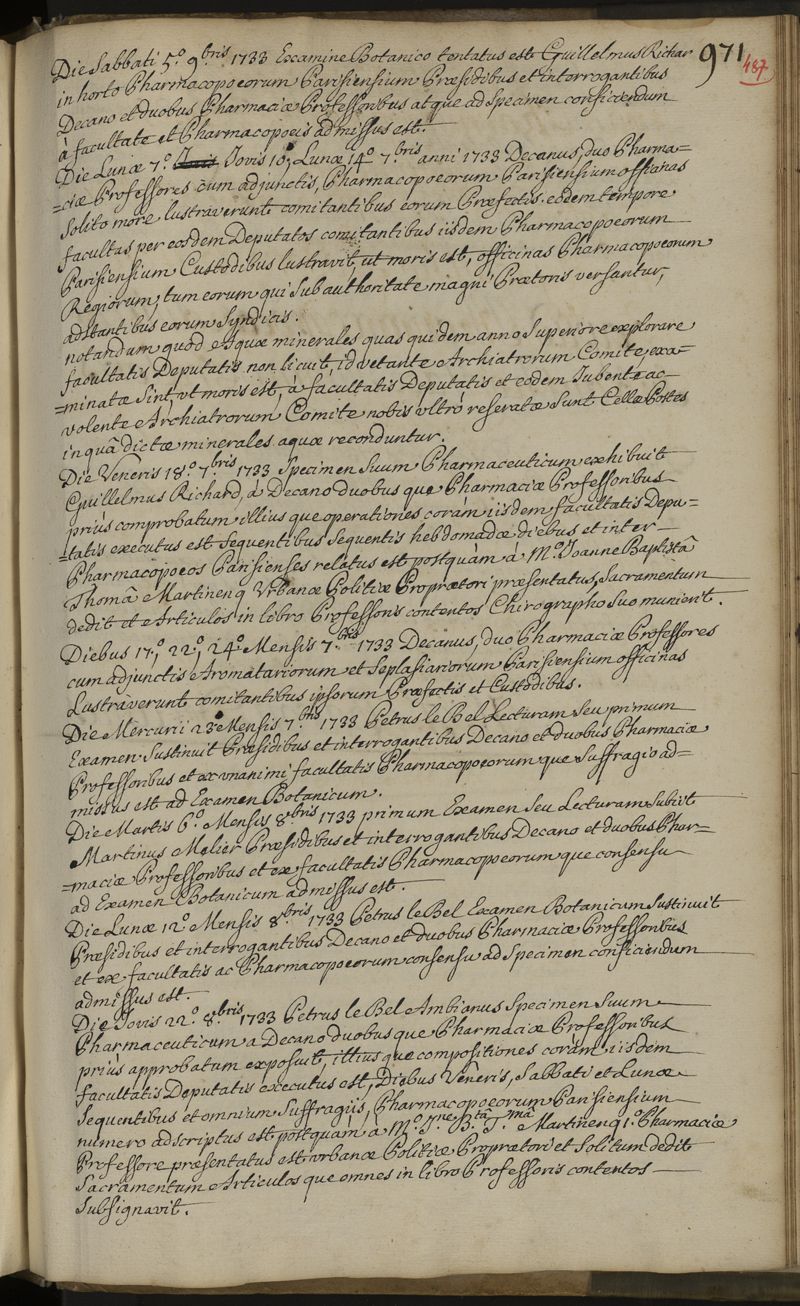 971
487
Die Sabbati 5.º 9.bris 1733 Examine Botanico tentatus est Guillelmus Richar
in horto Pharmacopoeorum Parisiensium Præsidibus et interrogantibus
Decano et duobus Pharmaciæ Professoribus atque ad Specimen conficiendum
à facultate et Pharmacopoeis admissus est.
Die Lunæ 7.º Jovis 10, Lunæ 14.º 7.bris anni 1733 Decanus, duo Pharma=
=ciæ Professores cum adjunctis, Pharmacopoeorum Parisiensium officinas
Solito more lustraverunt comitantibus eorum Præfectis. eodem tempore
facultas per eosdem Deputatos comitantibus iisdem Pharmacopoeorum
Parisiensium Custodibus lustravit, ut moris est, officinas Pharmacopoeorum
Regiorum, tum eorum qui Sub authoritate magni Prætoris versantur,
adstantibus eorum Syndicis.
notandum quod Aquæ minerales quas quidem anno Superiore explorare
facultatis Deputatis non licuit, id vetante Archiatrorum Comite, exa=
=minatæ Sint, ut moris est, à facultatis Deputatis et eodem Jubente ac
volente Archiatrorum Comite nobis ultrò reseratæ Sunt Cellæ Portes
in quâ dictæ minerales aquæ reconduntur.
Die Veneris 18.º 7.bris 1733 Specimen Suum Pharmaceuticum exhibuit
Guillelmus Richard, à Decano duobus que Pharmaciæ Professoribus
priùs comprobatum illius que operationes coram iisdem facultatis Depu=
=tatis executus est Sequentibus Sequentis hebdomadæ diebus et inter
Pharmacopoeos Parisienses relatus est postquàm à M.º Joanne Baptistâ
Thomâ Martinenq Urbanæ Politiæ Proprætori præsentatus, Sacramentum
dedit et Articulos in libro Professoris contentos Chirographo Suo munierit.
Diebus 17.º, 22.º, 24.º Mensis 7.bris 1733 Decanus, duo Pharmaciæ Professores
cum adjunctis Aromatariorum et Seplasiariorum Parisiensium officinas
Lustraverunt comitantibus ipsorum Præfectis et Custodibus.
Die Mercurii 23.º Mensis 7.bris 1733 Petrus le Bel Lecturam Seu primum
Examen Sustinuit Præsidibus et interrogantibus Decano et duobus Pharmaciæ
Professoribus et ex unanimi facultatis Pharmacopoeorum que Suffragio ad=
missus est ad Examen Botanicum.
Die Martis 6.º Mensis 8.bris 1733 primum Examen Seu Lecturam Subiit
Martinus Melier Præsidibus et interrogantibus Decano et duobus Phar=
=maciæ Professoribus et ex facultatis Pharmacopoeorum que consensu
ad Examen Botanicum admissus est.
Die Lunæ 12.º Mensis 8.bris 1733 Petrus le Bel Examen Botanicum Sustinuit
Præsidibus et interrogantibus Decano et duobus Pharmaciæ Professoribus
et ex facultatis ac Pharmacopoeorum consensu ad Specimen conficiendum
admissus est.
Die Jovis 22.º 8.bris 1733 Petrus le Bel Ambianus Specimen Suum
Pharmaceuticum a Decano duobus que Pharmaciæ Professoribus
priùs approbatum exposuit, illius que compositiones coràm iisdem
facultatis Deputatis executus est, Diebus Veneris, Sabbati et Lunæ
Sequentibus et omnium Suffragiis, Pharmacopoeorum Parisiensium
numero adscriptus est postquàm à M.º J.ne B.tâ T.mâ Martinenq 1.º Pharmaciæ
Professore præsentatus est urbanæ Politiæ Proprætori et Solitum dedit
Sacramentum Articulos que omnes in libro Professoris contentos
Subsignavit.